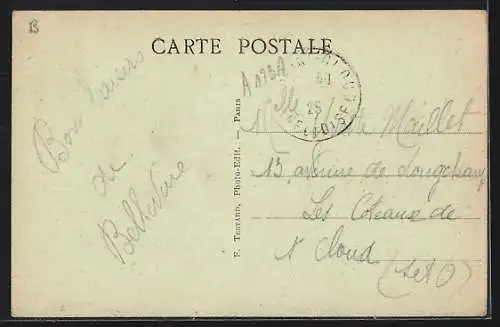 B
CARTE POSTALE
Bons baisers
de
Bellevue
F. Testard, Photo-Edit. - Paris
Maillet
13 avenue de Longchamp
Les Coteaux de
St Cloud
(Set O)